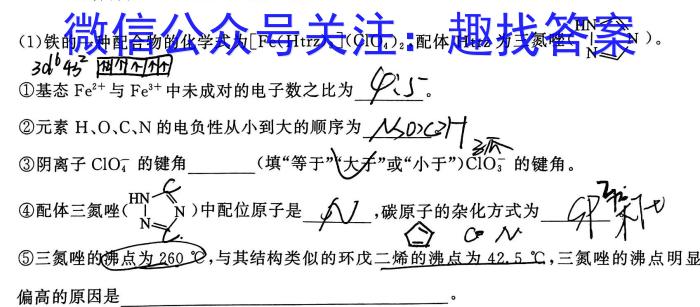 微信公众号关注：趣找答案
(1)铁的一种配合物的化学式为[Fe(Htrz)](ClO₄)₂,配体Htrz为三氮唑( HN N N )。
3d⁶4s²
①基态 Fe²⁺与 Fe³⁺中未成对的电子数之比为 4:5 。
②元素 H、O、C、N 的电负性从小到大的顺序为 N>O>C>H
③阴离子 ClO₄⁻ 的键角 (填“等于”“大于”或“小于”)ClO₃⁻ 的键角。
④配体三氮唑( HN N N C C )中配位原子是 N ,碳原子的杂化方式为
C N
⑤三氮唑的沸点为 260 ℃,与其结构类似的环戊二烯的沸点为 42.5 ℃,三氮唑的沸点明显
偏高的原因是 。